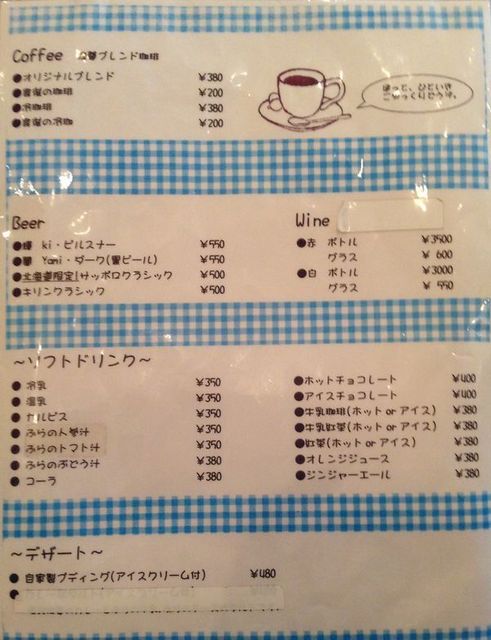 Coffee ブレンド珈琲
●オリジナルブレンド ¥380
●食後の珈琲 ¥200
●冷珈琲 ¥380
●食後の冷珈 ¥200
ほっと、ひといき
ごゆっくりどうぞ。
Beer
ki・ピルスナー ¥550
Yami・ダーク(黒ビール) ¥550
●北海道限定!サッポロクラシック ¥500
●キリンクラシック ¥500
Wine
●赤 ボトル ¥3500
グラス ¥ 600
●白 ボトル ¥3000
グラス ¥ 550
～ソフトドリンク～
● 冷乳 ¥350
● 温乳 ¥350
● カルピス ¥350
● ふらの人参汁 ¥350
● ふらのトマト汁 ¥350
● ふらのぶどう汁 ¥380
● コーラ ¥380
●ホットチョコレート ¥400
●アイスチョコレート ¥400
●牛乳珈琲(ホット or アイス) ¥380
●牛乳紅茶(ホット or アイス) ¥380
●紅茶(ホット or アイス) ¥380
●オレンジジュース ¥380
●ジンジャーエール ¥380
～デザート～
● 自家製プディング(アイスクリーム付) ¥480